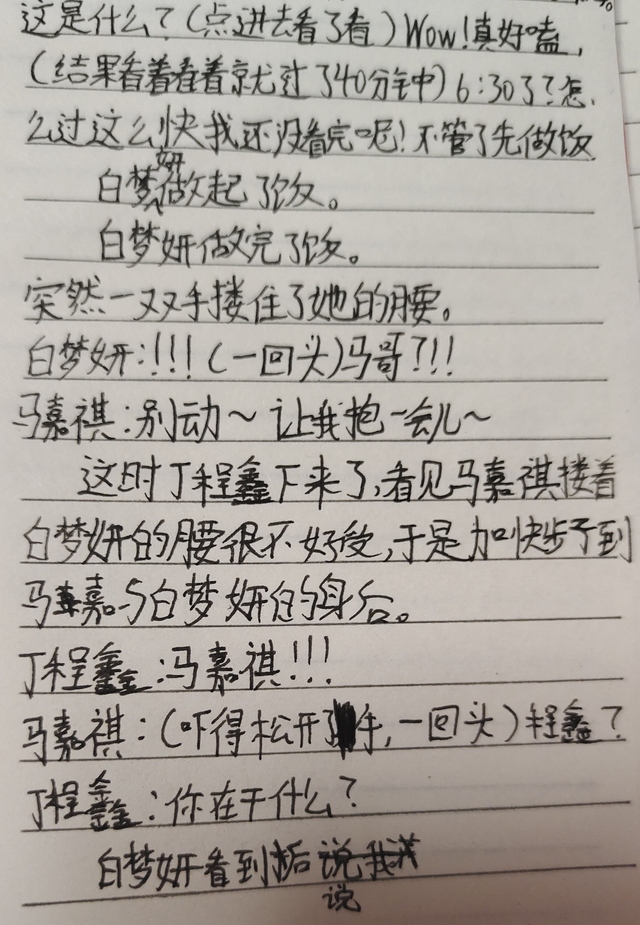 这是什么？(点进去看了看)Wow!真好嗑,
(结果看着看着就过了40分钟中)6:30了?怎
么过这么快我还没看完呢!不管了先做饭
白梦妍做起了饭。
白梦妍做完了饭。
突然一双手搂住了她的腰。
白梦妍:!!!(一回头)马哥?!!!
马嘉祺:别动~让我抱一会儿~
这时丁程鑫下来了,看见马嘉祺搂着
白梦妍的腰很不好受,于是加快步子到
马嘉与白梦妍的身后。
丁程鑫:马嘉祺!!!
马嘉祺:(吓得松开手,一回头)程鑫?
丁程鑫:你在干什么?
白梦妍看到后说我
说